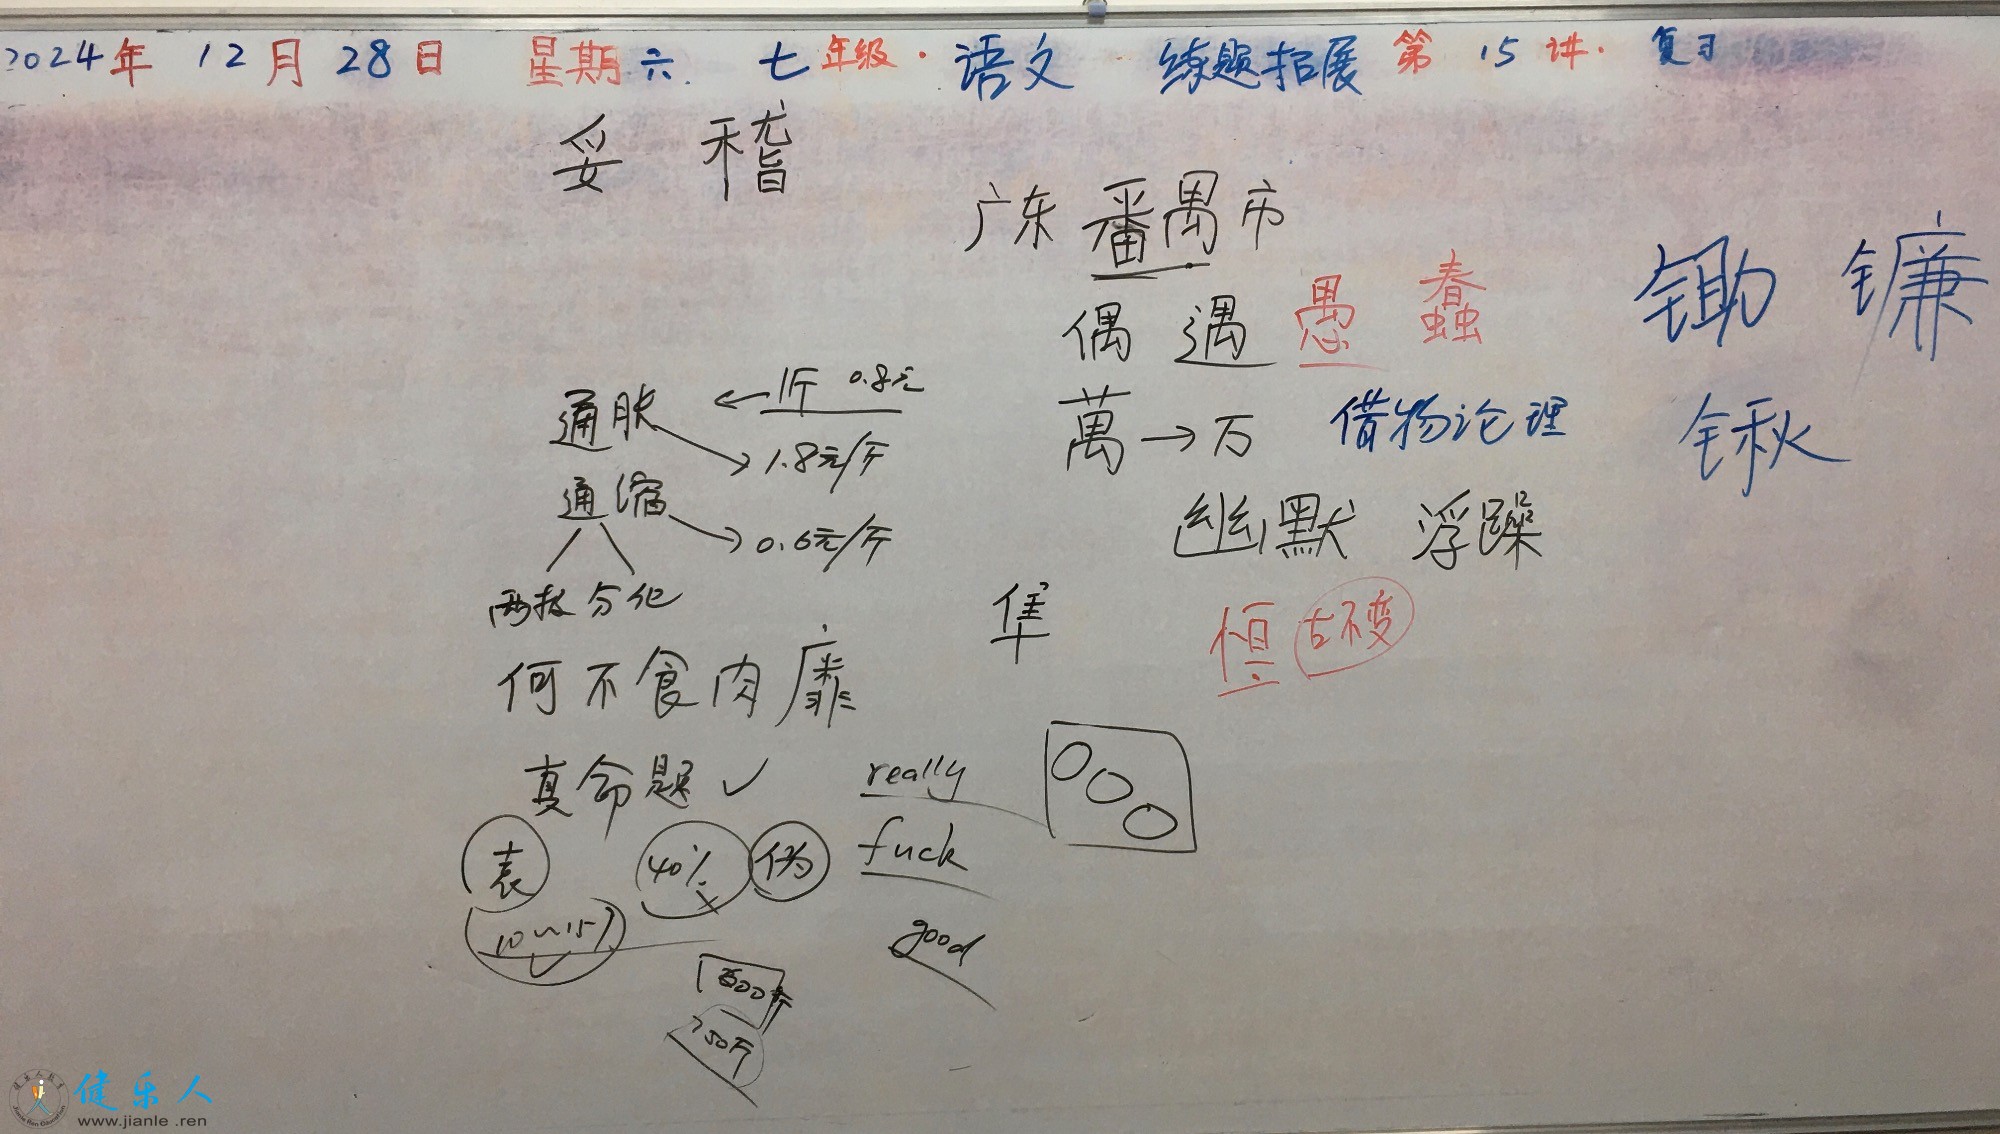 2024年 12月 28日 星期六 七年级·语文 练题拓展 第15讲·复习
妥 稽
广东番禺市
偶 遇 愚 蠢
锄 镰
通胀 ← 1斤 0.8元
1.8元/斤
萬→万
借物论理
锹
通缩
0.6元/斤
幽默 浮躁
两极分化
隼
恒古不变
何不食肉靡
真命题✓
really
表 40% 伪
fuck
10~15
good
800斤
750斤
健乐人
www.jianle.ren